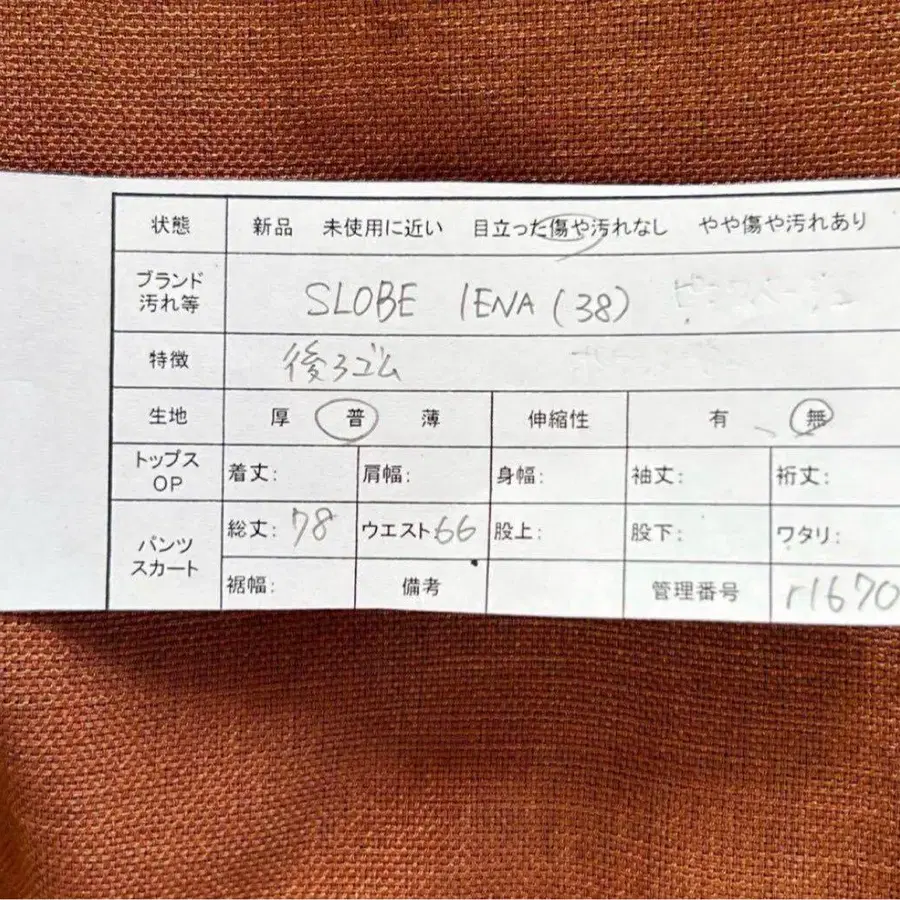 状態 新品 未使用に近い 目立った傷や汚れなし やや傷や汚れあり
ブランド
汚れ等 SLOBE IENA (38)
特徴 後ろゴム
生地 厚 普 薄 伸縮性 有 無
トップス
OP 着丈: 肩幅: 身幅: 袖丈: 裄丈:
パンツ
スカート 総丈: 78 ウエスト: 66 股上: 股下: ワタリ:
裾幅: 備考 管理番号 r1670